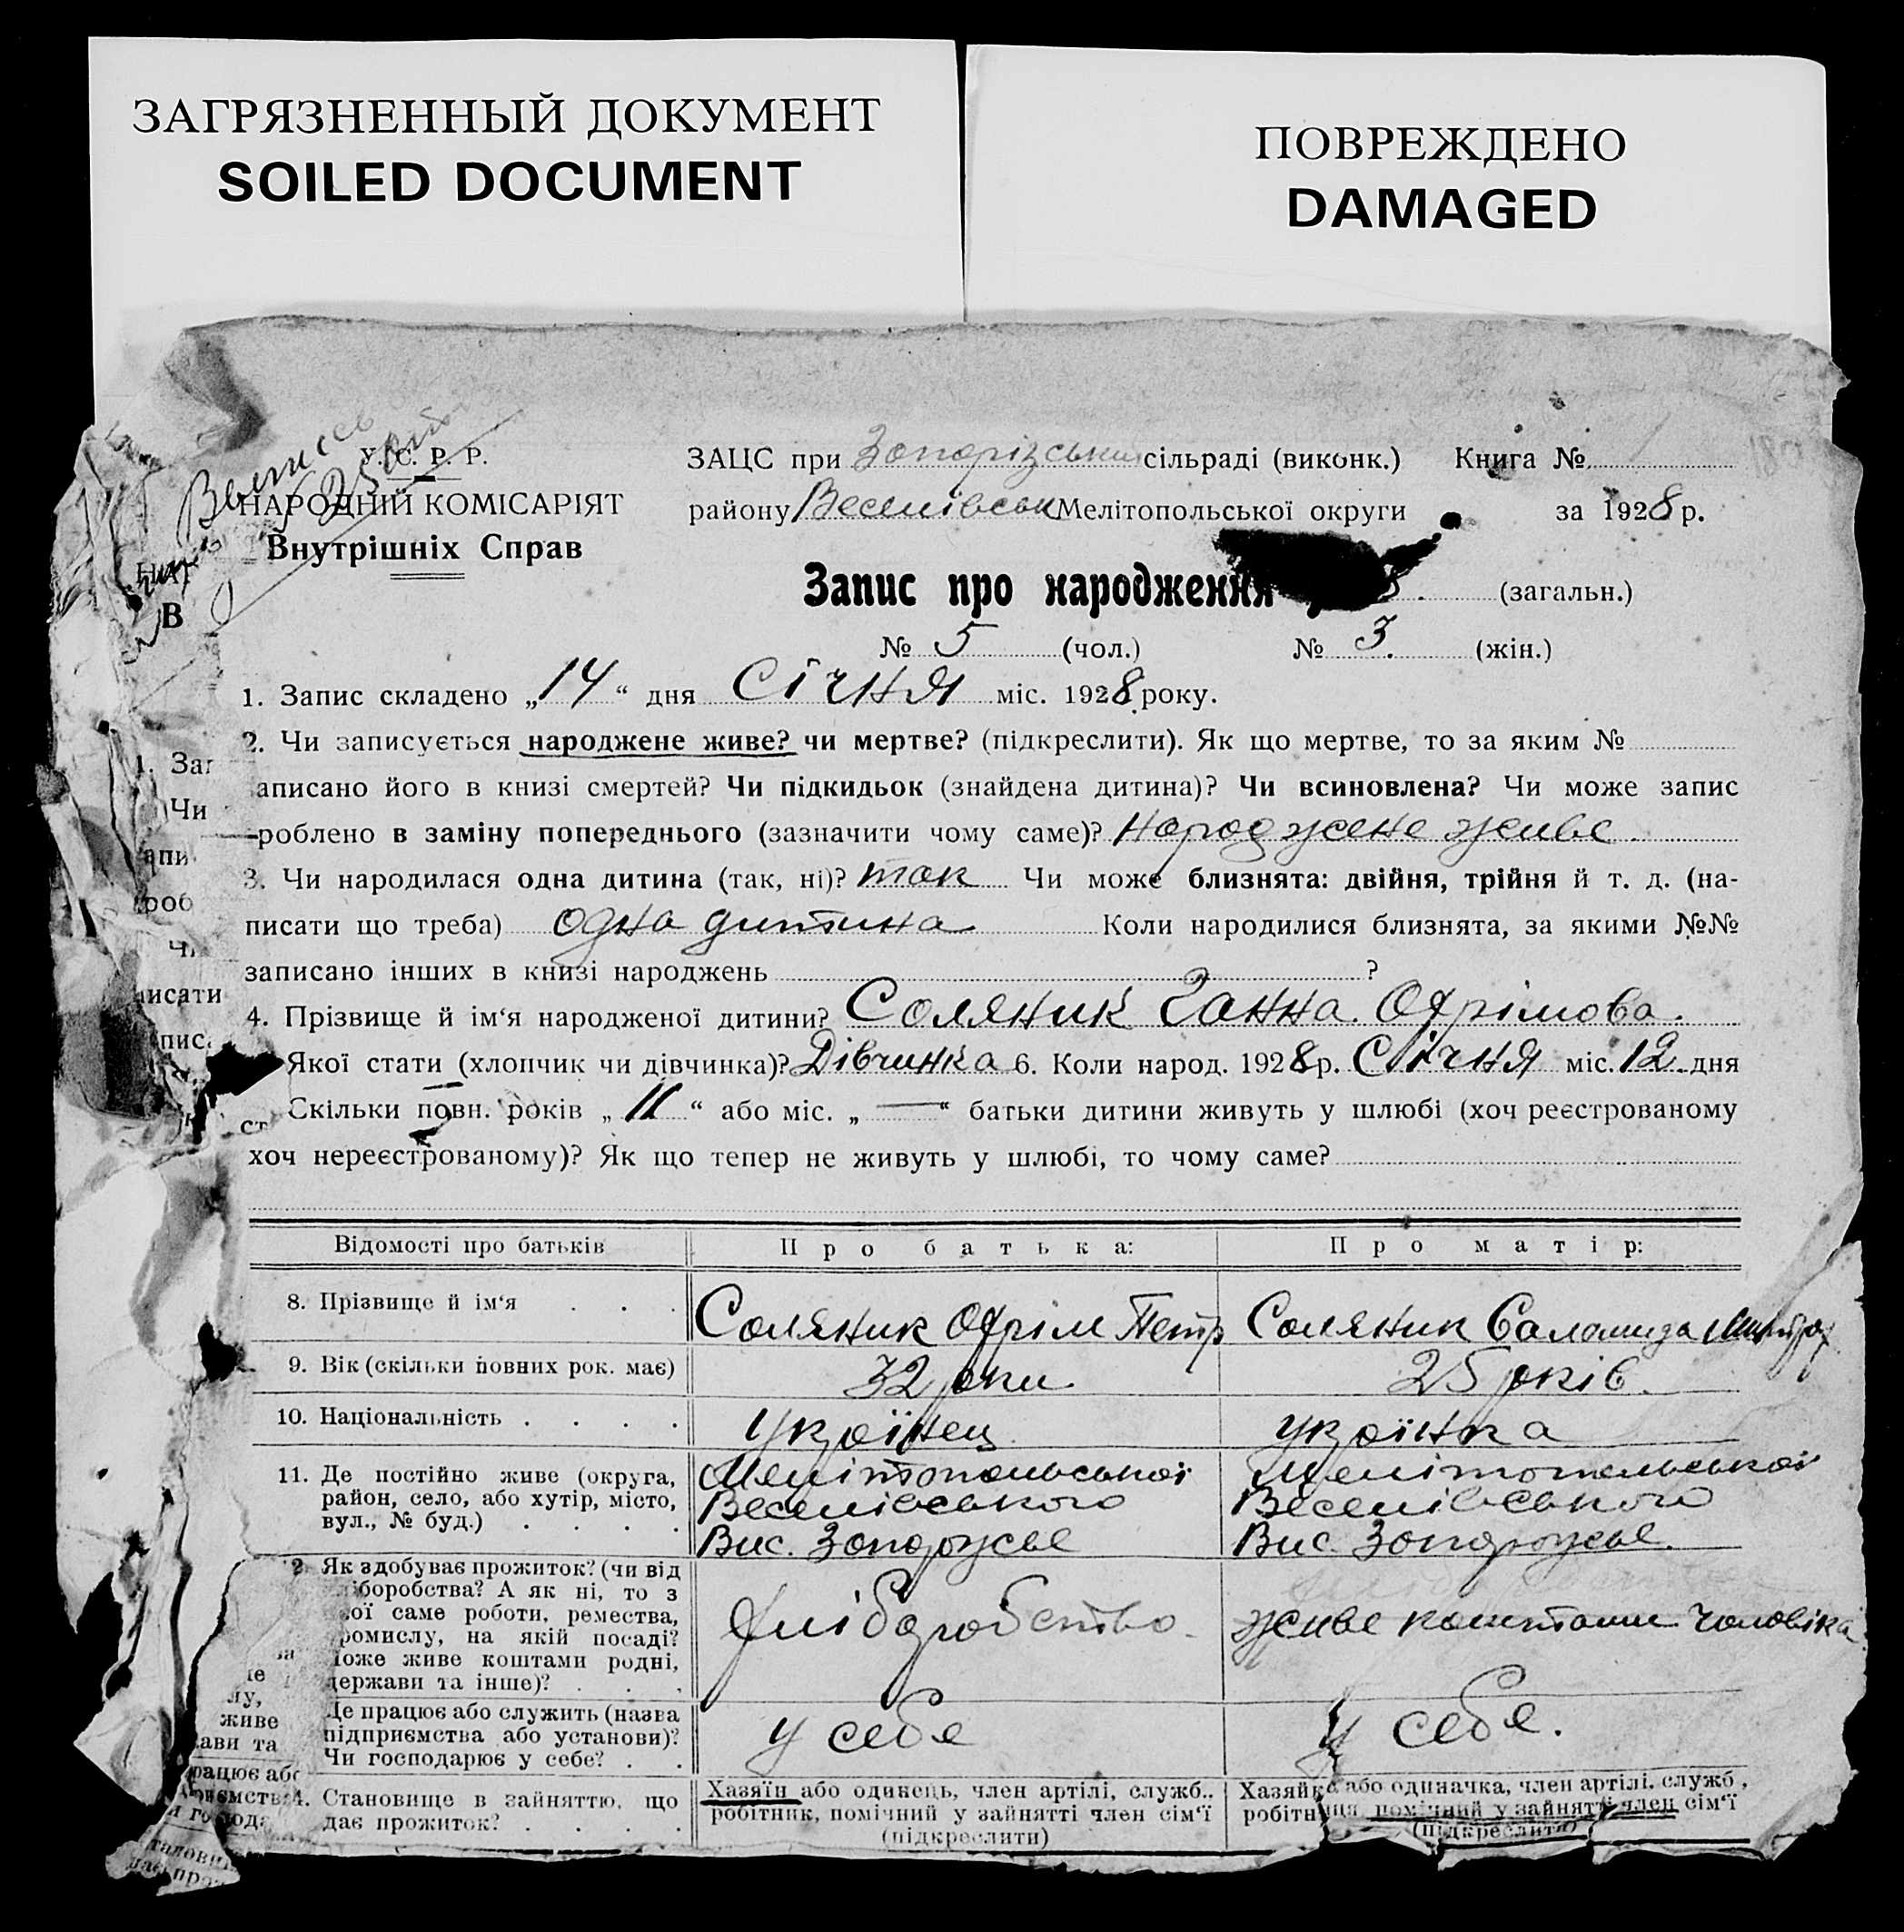 ЗАГРЯЗНЕННЫЙ ДОКУМЕНТ
SOILED DOCUMENT
ПОВРЕЖДЕНО
DAMAGED
У. С. Р. Р.
НАРОДНІЙ КОМІСАРІЯТ
Внутрішніх Справ
ЗАЦС при Запорізський сільраді (виконк.) Книга № 1
району Веселівськ Мелітопольської округи за 1928 р.
Запис про народження (загальн.)
№ 5 (чол.) № 3. (жін.)
1. Запис складено „14“ дня Січня міс. 1928 року.
2. Чи записується народжене живе? чи мертве? (підкреслити). Як що мертве, то за яким №
аписано його в книзі смертей? Чи підкидьок (знайдена дитина)? Чи всиновлена? Чи може запис
роблено в заміну попереднього (зазначити чому саме)? народжене живе
3. Чи народилася одна дитина (так, ні)? так Чи може близнята: двійня, трійня й т. д. (на-
писати що треба) одна дитина Коли народилися близнята, за якими №№
записано інших в книзі народжень ?
4. Прізвище й ім‘я народженої дитини? Соляник Ганна Охрімова.
Якої стати (хлопчик чи дівчинка)? Дівчинка 6. Коли народ. 1928 р. Січня міс. 12 дня
Скільки повн. років „11“ або міс. „—“ батьки дитини живуть у шлюбі (хоч реєстрованому
хоч нереєстрованому)? Як що тепер не живуть у шлюбі, то чому саме?
Відомості про батьків Про батька: Про матір:
8. Прізвище й ім‘я Соляник Охрім Петр Соляник Саламида
9. Вік (скільки повних рок. має) 32 роки 25 років.
10. Національність Українец Українка
11. Де постійно живе (округа, район, село, або хутір, місто, вул., № буд.)
Мелітопольської Мелітопольської
Веселівського Веселівського
Вис. Запорожье Вис. Запорожье.
2. Як здобуває прожиток? (чи від
боробства? А як ні, то з
ої саме роботи, ремества,
ромислу, на якій посаді?
оже живе коштами родні,
держави та інше)?
Хліборобство. живе коштами чоловіка
Де працює або служить (назва
підприємства або установи)?
Чи господарює у себе?
у себе у себе.
4. Становище в зайняттю, що
дає прожиток?
Хазяїн або одинець, член артілі, служб.,
робітник, помічний у зайнятті член сім‘ї
(підкреслити)
Хазяйка або одиначка, член артілі, служб,
робітниця, помічний у зайнятті член сім‘ї
(підкреслити)